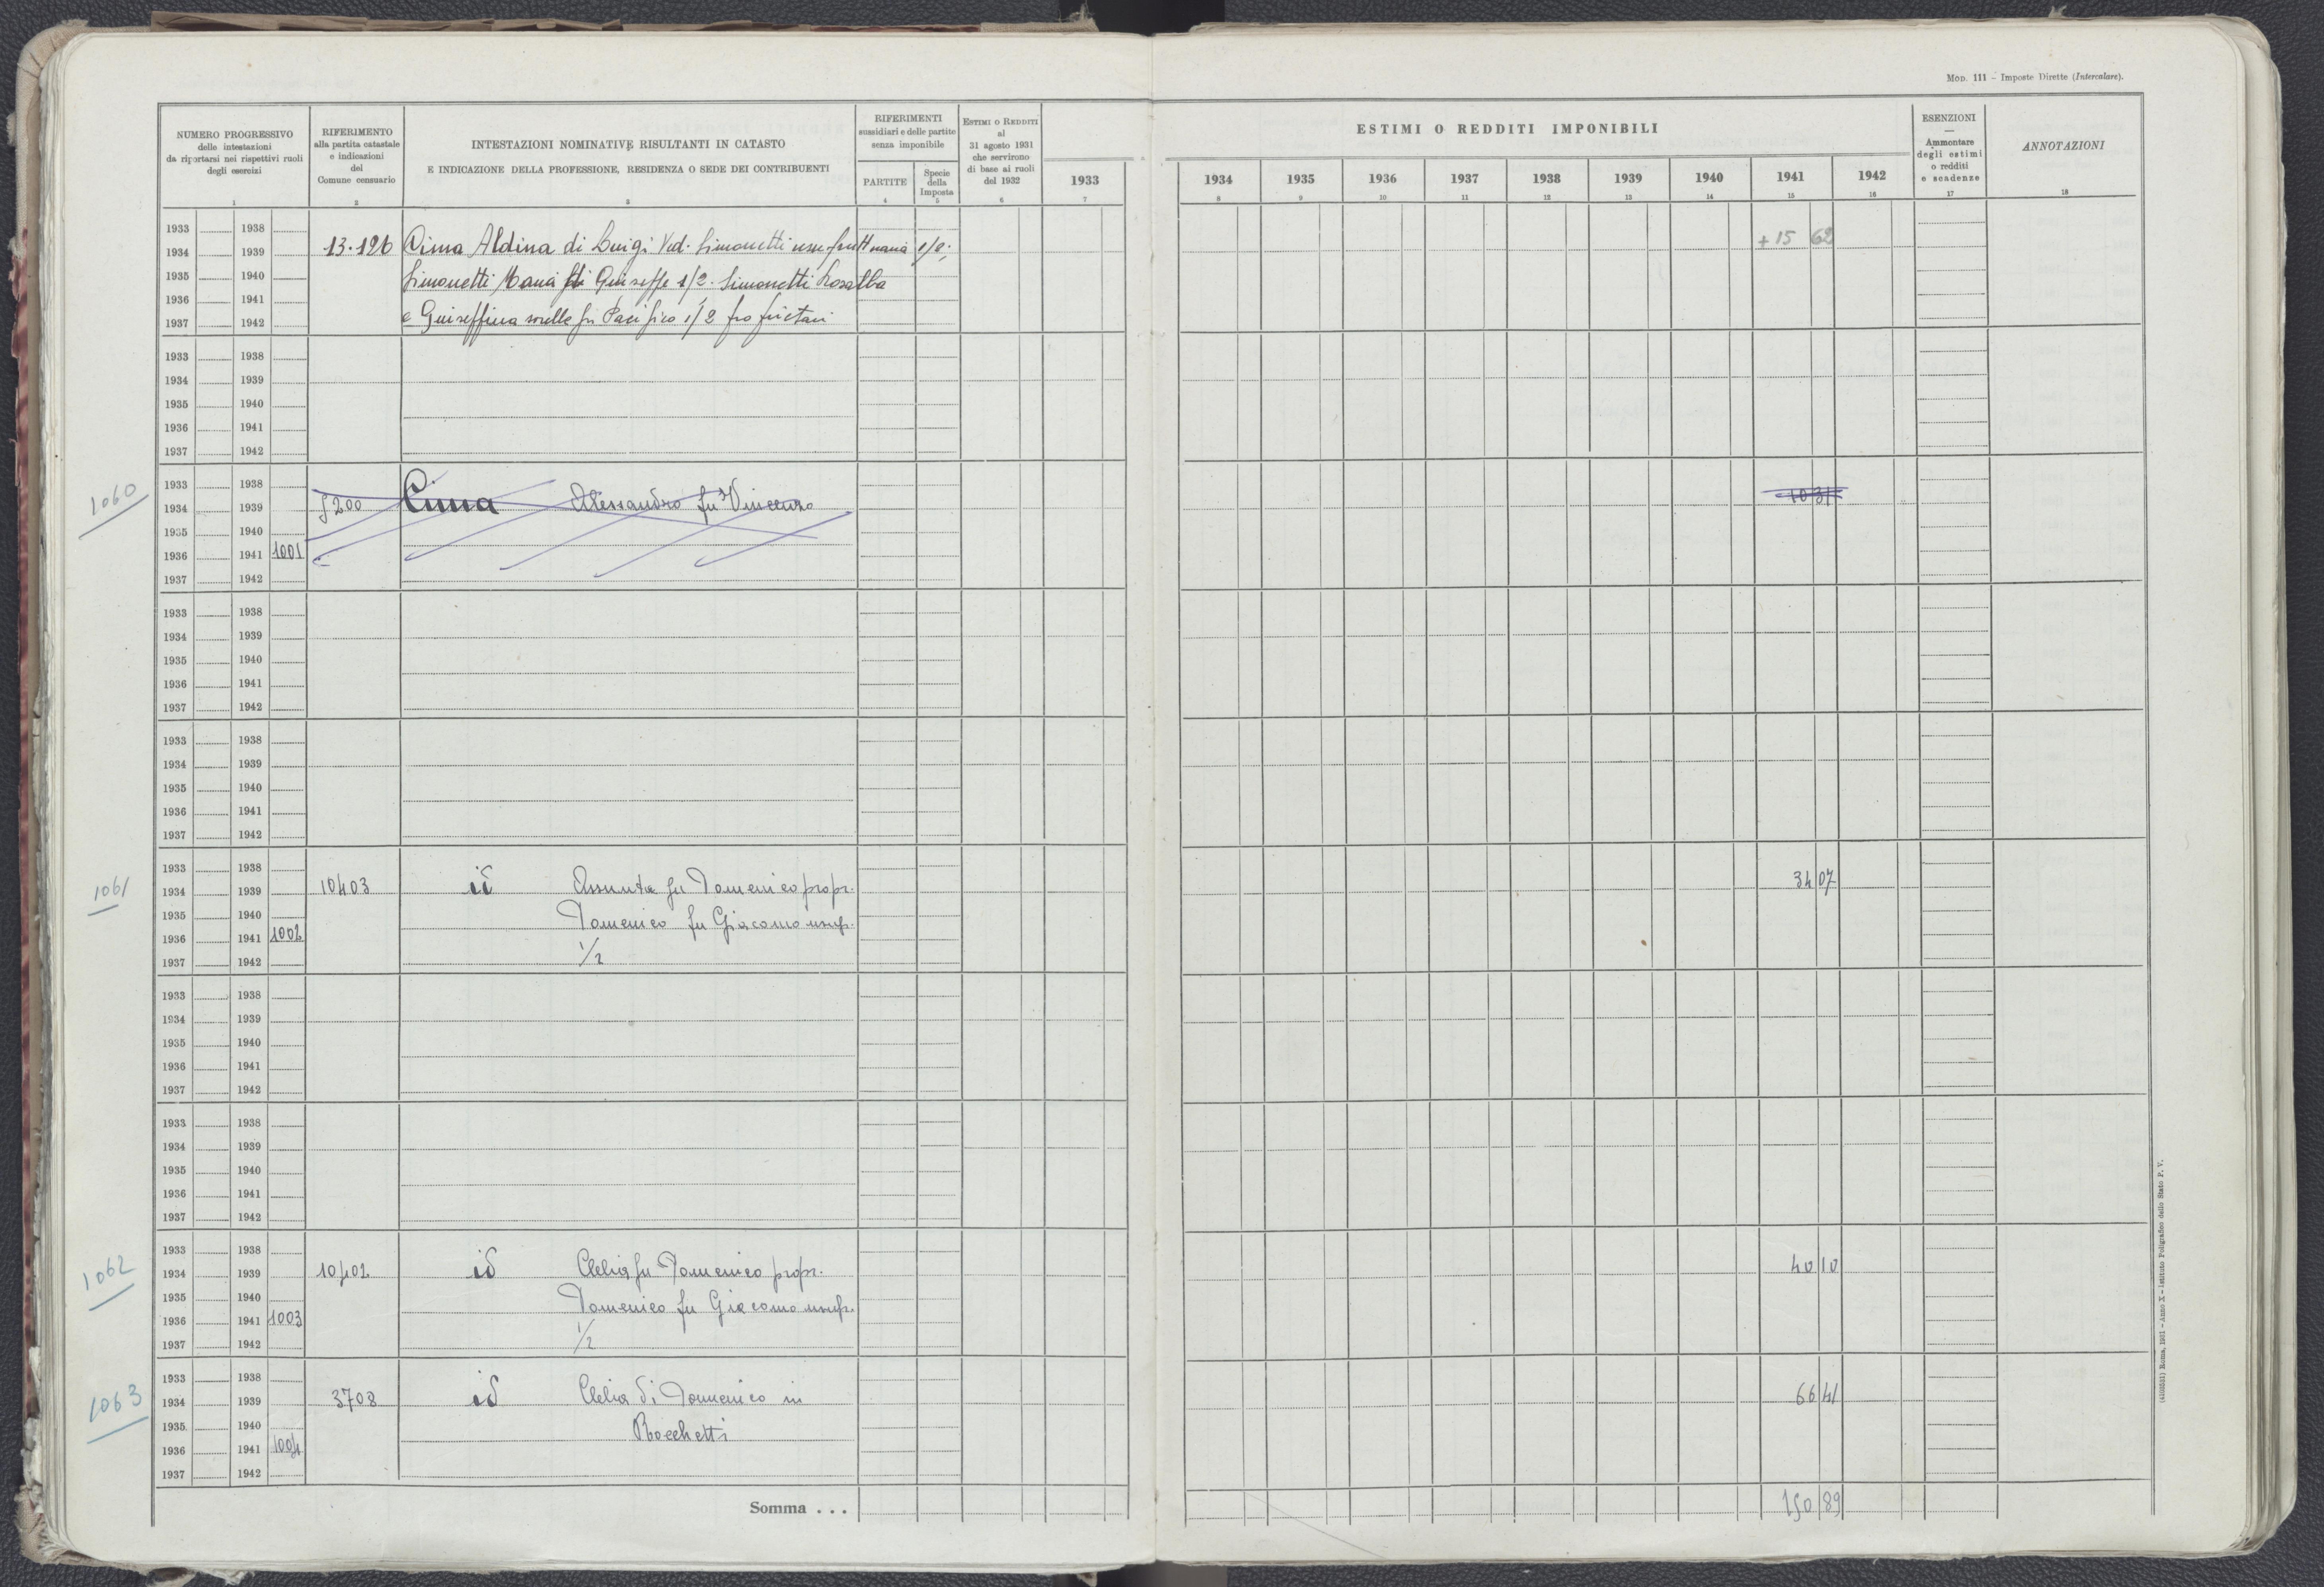 MOD. 111 - Imposte Dirette (Intercalare).
NUMERO PROGRESSIVO
delle intestazioni
da riportarsi nei rispettivi ruoli
degli esercizi
1
RIFERIMENTO
alla partita catastale
e indicazioni
del
Comune censuario
2
INTESTAZIONI NOMINATIVE RISULTANTI IN CATASTO
E INDICAZIONE DELLA PROFESSIONE, RESIDENZA O SEDE DEI CONTRIBUENTI
3
RIFERIMENTI
sussidiari e delle partite
senza imponibile
PARTITE
4
Specie
della
Imposta
5
ESTIMI O REDDITI
al
31 agosto 1931
che servirono
di base ai ruoli
del 1932
6
1933
7
ESTIMI O REDDITI IMPONIBILI
1934 1935 1936 1937 1938 1939 1940 1941 1942
8 9 10 11 12 13 14 15 16
ESENZIONI
—
Ammontare
degli estimi
o redditi
e scadenze
17
ANNOTAZIONI
18
1933 1938
1934 1939 13.126 Cima Aldina di Luigi Ved. Simonetti usufruttuaria 1/2; + 15 62
1935 1940 Simonetti Maria di Giuseppe 1/2. Simonetti Rosalba
1936 1941
1937 1942 e Giuseppina sorelle fu Pacifico 1/2 proprietari
1933 1938
1934 1939
1935 1940
1936 1941
1937 1942
1060
1933 1938
1934 1939 5200 Cima Alessandro fu Vincenzo 10 31
1935 1940
1936 1941 1001
1937 1942
1933 1938
1934 1939
1935 1940
1936 1941
1937 1942
1933 1938
1934 1939
1935 1940
1936 1941
1937 1942
1061
1933 1938
1934 1939 10403 id Assunta fu Domenico propr. 34 07
1935 1940 Domenico fu Giacomo usuf.
1936 1941 1002
1937 1942 1/2
1933 1938
1934 1939
1935 1940
1936 1941
1937 1942
1933 1938
1934 1939
1935 1940
1936 1941
1937 1942
1062
1933 1938
1934 1939 10402 id Clelia fu Domenico propr. 40 10
1935 1940 Domenico fu Giacomo usufr.
1936 1941 1003
1937 1942 1/2
1063
1933 1938
1934 1939 3708 id Clelia di Domenico in 66 41
1935 1940 Rocchetti
1936 1941 1004
1937 1942
Somma . . . 150 89
(4103531) Roma, 1931 - Anno X - Istituto Poligrafico dello Stato P. V.